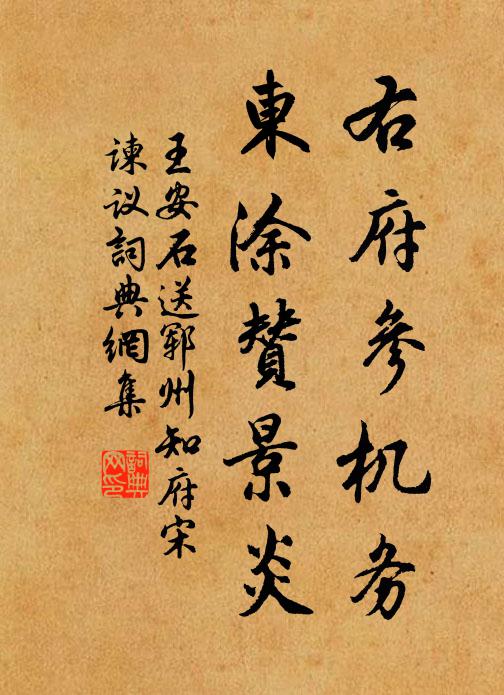 右府参机务
東涂賛景炎
王安石送郓州知府宋
谏议詞典網集
詞典网印